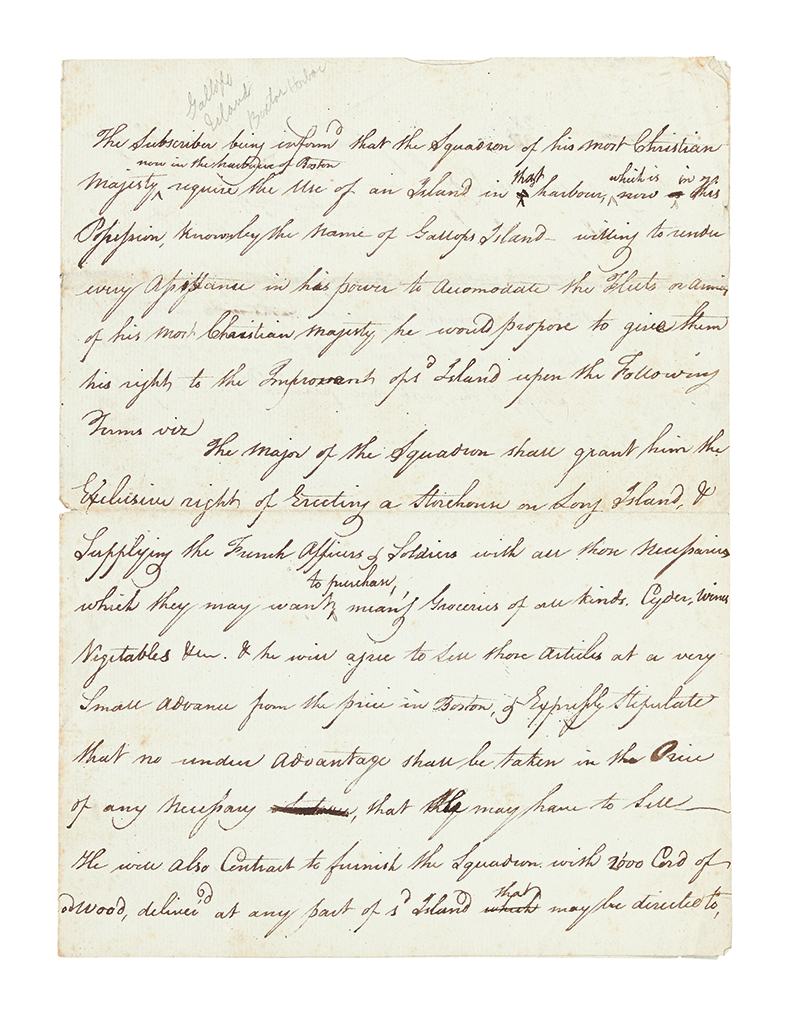 Gallops
Island
Boston Harbor
The Subscriber being inform'd that the Squadron of his most Christian
now in the harbour of Boston
Majesty, require the Use of an Island in that harbour, which is now in his
Possession, known by the Name of Gallops Island – willing to render
every Assistance in his power to Acomodate the Fleets or Armies
of his most Christian Majesty he would propose to give them
his right to the Improvement of s'd Island upon the Following
Terms viz
The Major of the Squadron shall grant him the
Exclusive right of Erecting a Storehouse on Long Island, &
Supplying the French Officers & Soldiers with all those Necessaries
which they may want to purchase, mean'g Groceries of all kinds, Cyder, Wines
Vegetables &c. & he will agree to Sell those Articles at a very
Small Advance from the price in Boston, & Expressly Stipulate
that no undue Advantage shall be taken in the Price
of any Necessary, that they may have to Sell —
He will also Contract to furnish the Squadron with 2000 Cord of
Wood, deliver'd at any part of s'd Island which that may be directed to,